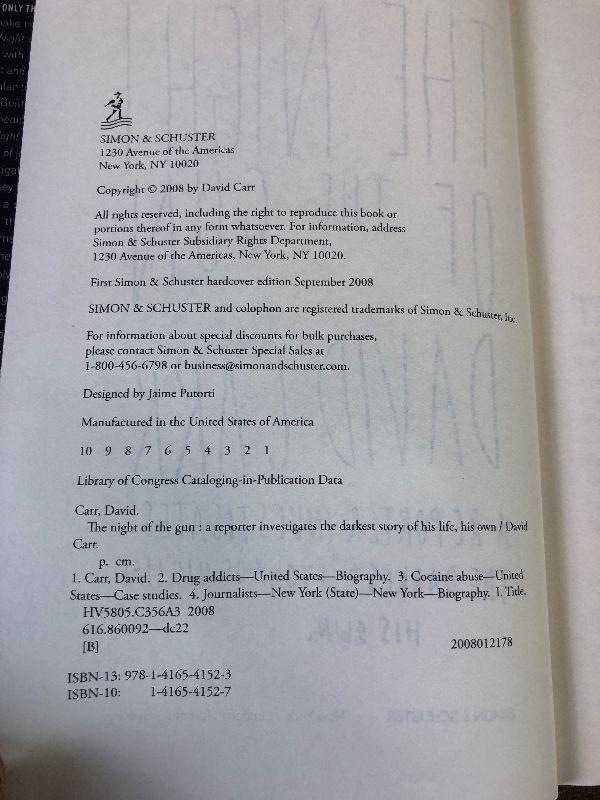 ONLY TH
SIMON & SCHUSTER
1230 Avenue of the Americas
New York, NY 10020
Copyright © 2008 by David Carr
All rights reserved, including the right to reproduce this book or
portions thereof in any form whatsoever. For information, address
Simon & Schuster Subsidiary Rights Department,
1230 Avenue of the Americas, New York, NY 10020.
First Simon & Schuster hardcover edition September 2008
SIMON & SCHUSTER and colophon are registered trademarks of Simon & Schuster, Inc.
For information about special discounts for bulk purchases,
please contact Simon & Schuster Special Sales at
1-800-456-6798 or business@simonandschuster.com.
Designed by Jaime Putorti
Manufactured in the United States of America
10 9 8 7 6 5 4 3 2 1
Library of Congress Cataloging-in-Publication Data
Carr, David.
The night of the gun : a reporter investigates the darkest story of his life, his own / David
Carr.
p. cm.
1. Carr, David. 2. Drug addicts—United States—Biography. 3. Cocaine abuse—United
States—Case studies. 4. Journalists—New York (State)—New York—Biography. I. Title.
HV5805.C356A3 2008
616.860092—dc22
[B] 2008012178
ISBN-13: 978-1-4165-4152-3
ISBN-10: 1-4165-4152-7